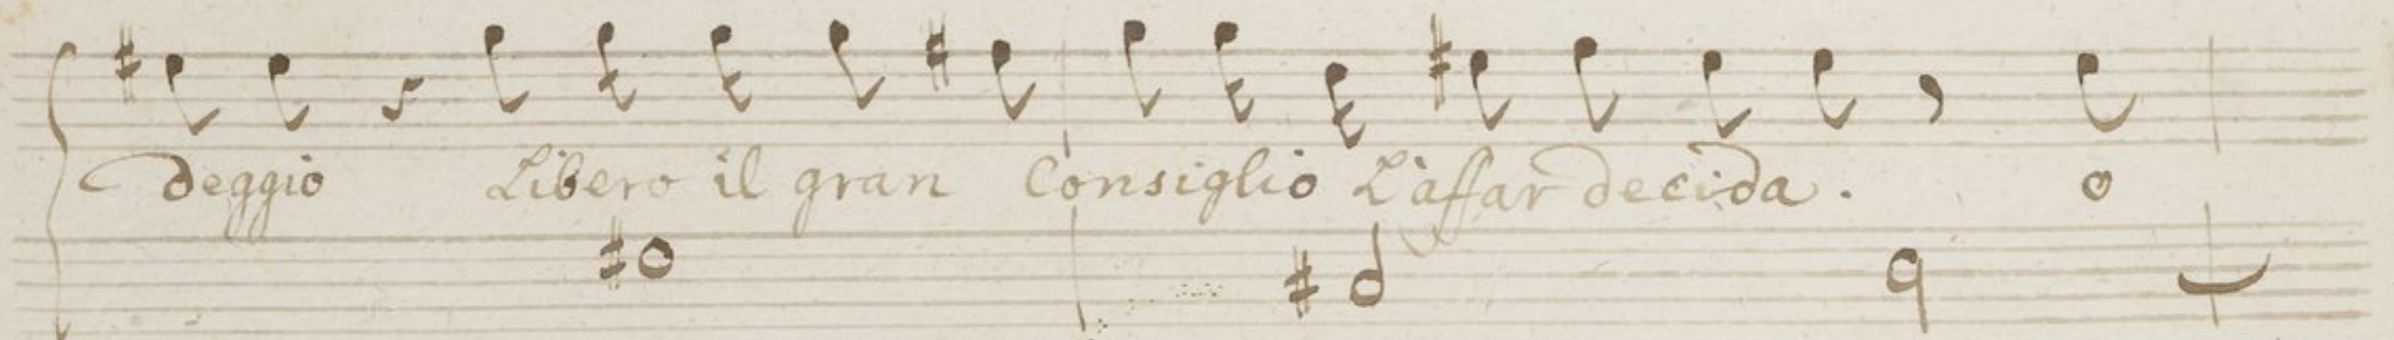 deggio Libero il gran Consiglio L'affar decida. o